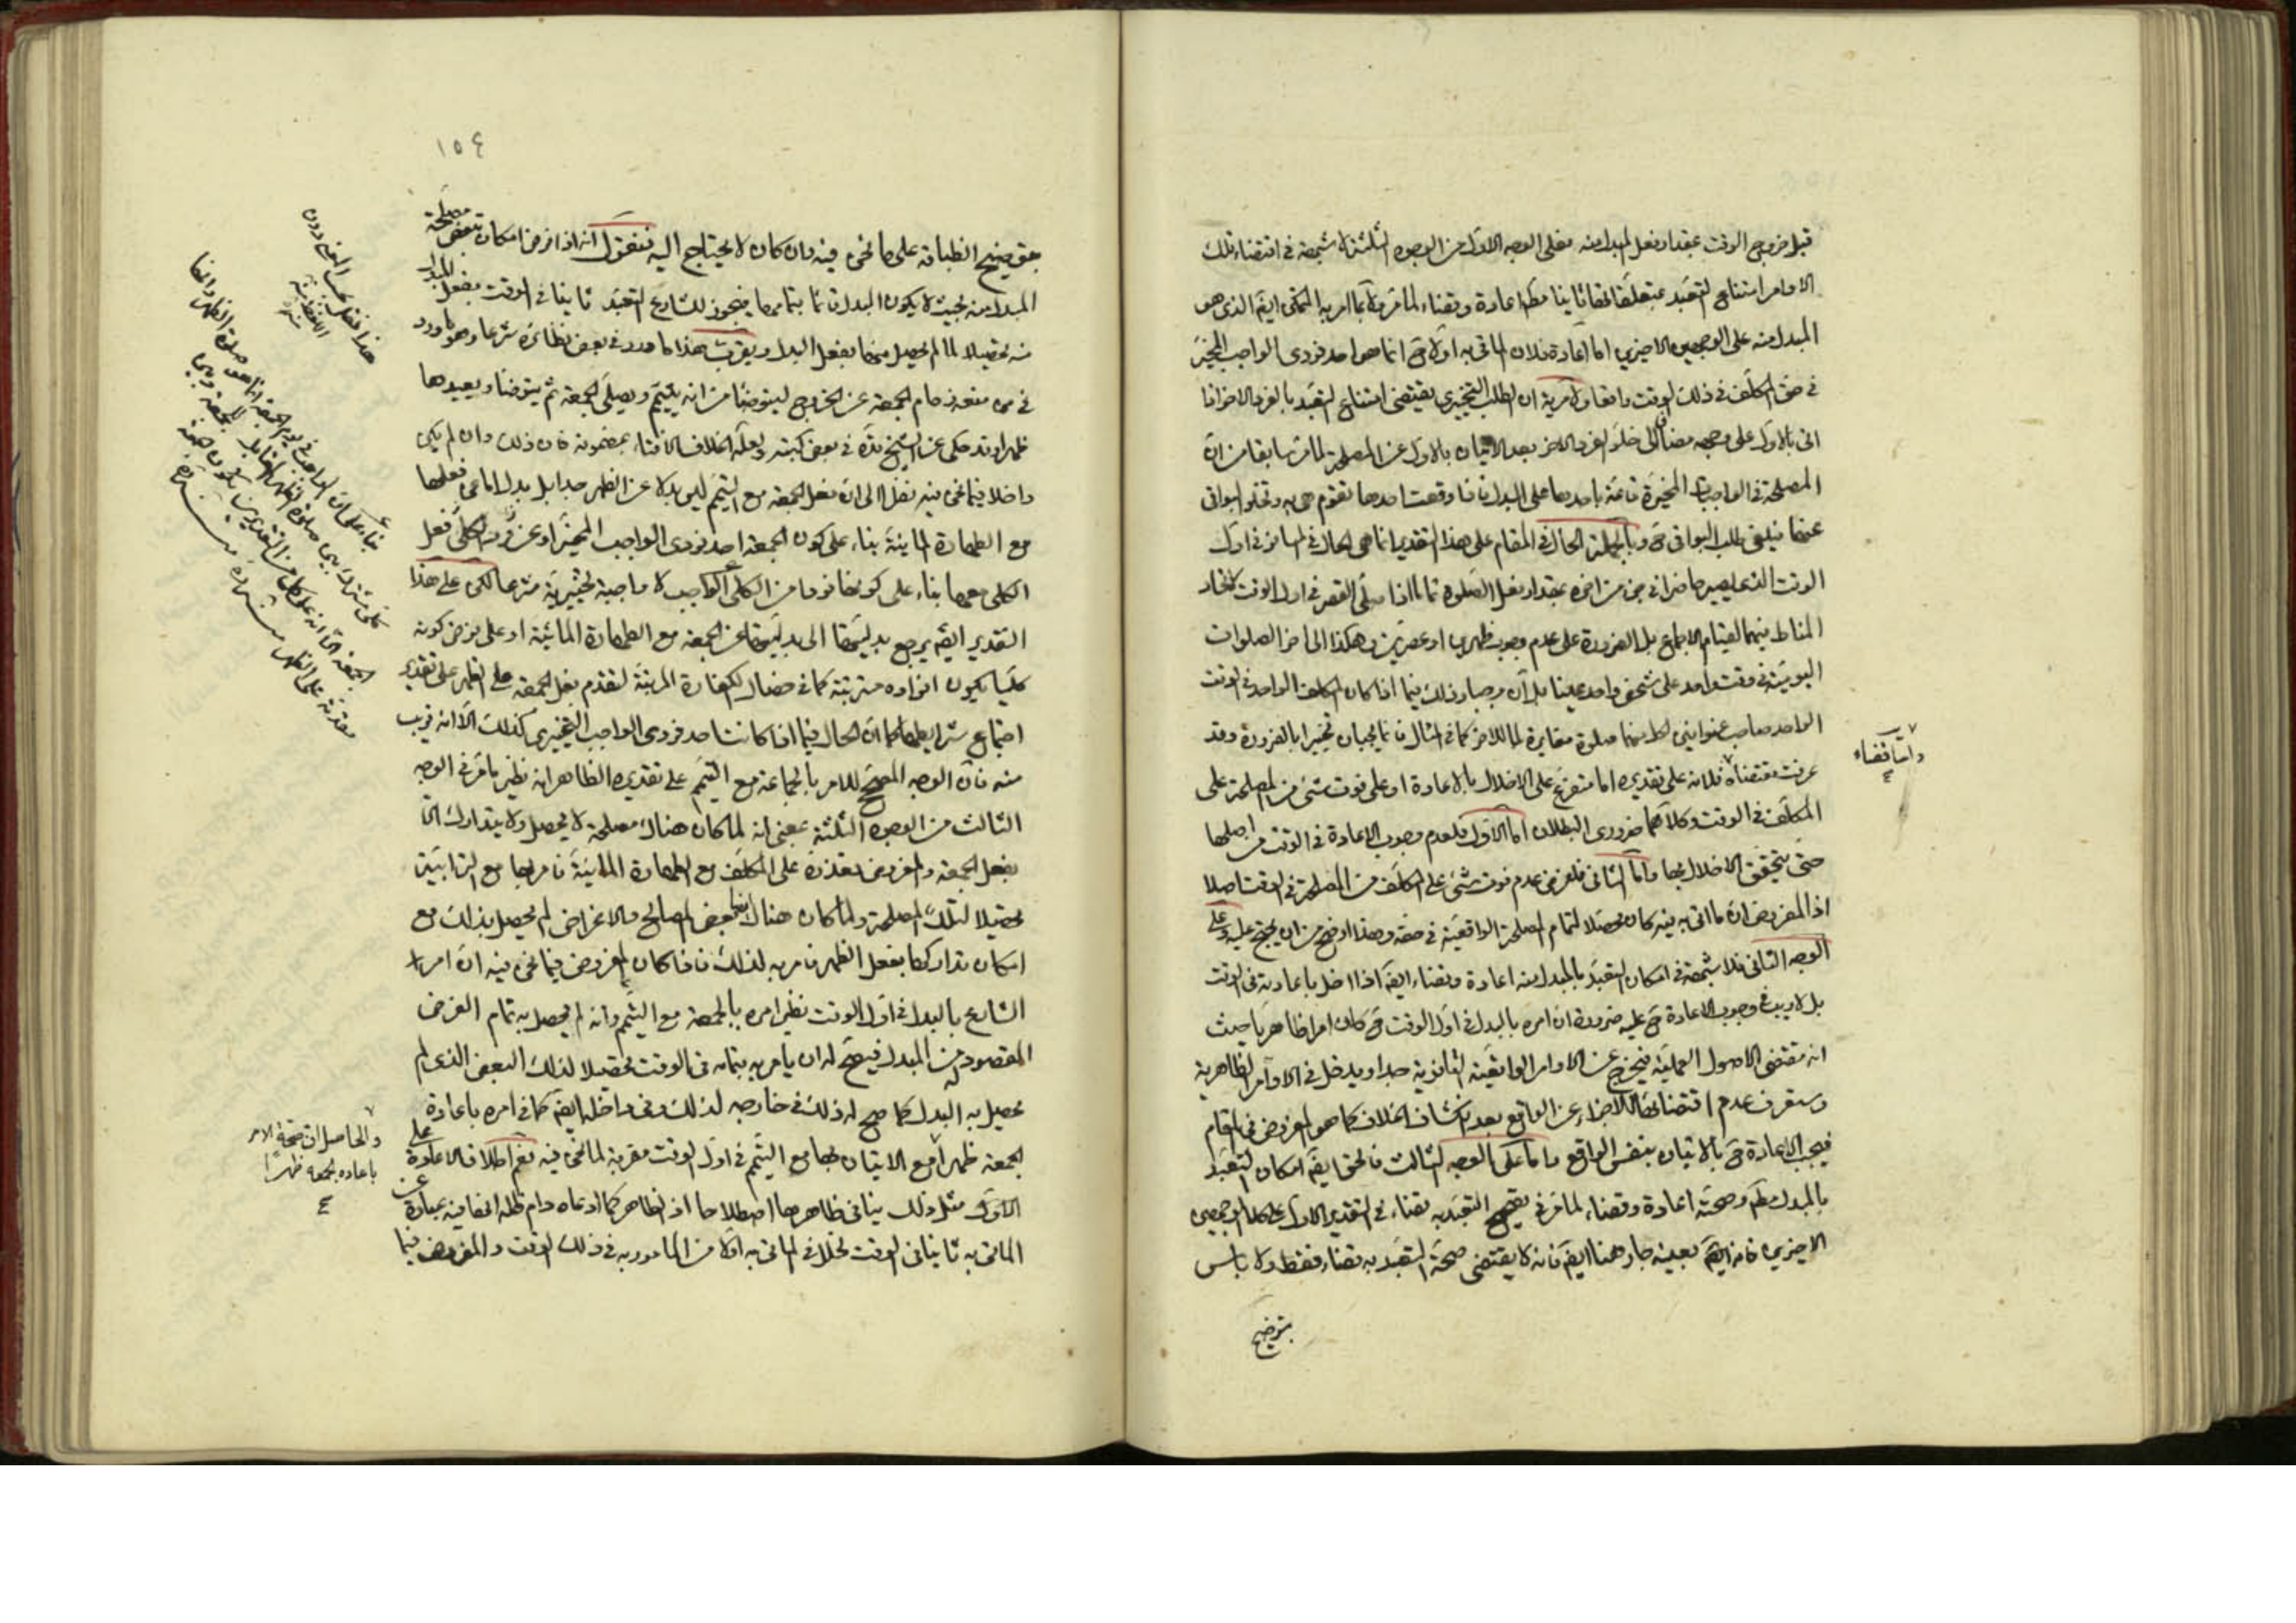 قبل خروج الوقت بمقدار فعل المبدل منه فعلى الوجه الاول من الوجوه الثلثة لا شبهة فى اقتضاء تلك
الاوامر امتناع التعبد بمتعلقاتها ثانيا مطلقا اعادة وقضاء لما مر بما امر به المختار ايضا الذى هو
المبدل منه على الوجهين الاخيرين اما اعادة فلان الماتى به اولا ح انما هو احد فردى الواجب المخير
فى حق المكلف فى ذلك الوقت واقعا ولا مرية ان الطلب التخييرى يقتضى امتناع التعبد بالفرد الاخر اذا
اتى بالاول على وجهه مضافا الى خلو الفرد الاخر بعد الاتيان بالاول عن المصلحة لما مر سابقا من ان
المصلحة فى الواجبات المخيرة قائمة باحدها على البدل فاذا وقعت احدها تقوم هى به وتخلو البواقى
عنها فيلغى طلب البواقى ح وبالجملة الحال فى المقام على هذا التقدير انما هى الحال فى المسافر فى اول
الوقت الذى يصير حاضرا فى جزء من اخره بمقدار فعل الصلوة تماما اذا صلى القصر فى اول الوقت لاتحاد
المناط فيهما لقيام الاجماع بل الضرورة على عدم وجوب ظهرين او عصرين وهكذا الى اخر الصلوات
اليومية فى وقت واحد على شخص واحد عينا بل ان وجبا فذلك فيما اذا كان المكلف الواحد فى الوقت
الواحد صاحب عنوانين لكل منهما صلوة مغايرة لما للاخر كما فى المثال فانما يجبان تخييرا بالضرورة وقد
عرفت مقتضاه فلانه على تقديره اما متفرع على الاخلال بالاعادة او على فوت شئ من المصلحة على
واما قضاء
المكلف فى الوقت وكلاهما ضرورى البطلان اما الاول فلعدم وجوب الاعادة فى الوقت من اصلها
حتى يتحقق الاخلال بها واما الثانى فلفرض عدم فوت شئ على المكلف من المصلحة فى الوقت اصلا
اذ المفروض ان ما اتى به فيه كان محصلا لتمام المصلحة الواقعية فى حقه وهذا اوضح من ان يحتج عليه وعلى
الوجه الثانى فلا شبهة فى امكان التعبد بالمبدل منه اعادة وقضاء ايضا اذا اخل باعادته فى الوقت
بل لا ريب فى وجوب الاعادة ح عليه ضرورة ان امره بالبدل فى اول الوقت ح كان امرا ظاهريا حيث
انه مقتضى الاصول العملية فيخرج عن الاوامر الواقعية الثانوية جدا ويدخل فى الاوامر الظاهرية
وستعرف عدم اقتضائها للاجزاء عن الواقع بعد انكشاف الخلاف كما هو المفروض فى المقام
فيجب الاعادة ح بالاتيان بنفس الواقع واما على الوجه الثالث فالحق ايضا امكان التعبد
بالمبدل مطلقا وصحته اعادة وقضاء لما مر فى التعبد به قضاء فى التقدير الاول على كلا الوجهين
الاخيرين فانه ايضا بعينه جار هنا ايضا فانه لا يقتضى صحة التعبد به قضاء فقط ولا باس
بتوضيح
١٥٤
انطباقه على ما نحن فيه وان كان لا يحتاج اليه فنقول انه اذا فرض امكان تبعض مصلحة
المبدل منه بحيث لا يكون البدل قائما بتمامها فيجوز للشارع التعبد ثانيا فى الوقت بفعل المبدل
منه تحصيلا لما لم يحصل منها بفعل البدل ويقرب هذا ما ورد فى بعض نظائره شرعا وهو ما ورد
فى من منعه زحام الجمعة عن الخروج ليتوضأ من انه يتيمم ويصلى الجمعة ثم يتوضأ ويعيدها
ظهرا وقد حكى عن الشيخ قده فى بعض كتبه ولعله الخلاف الافتاء بمضمونه فان ذلك وان لم يكن
داخلا فيما نحن فيه نظرا الى ان فعل الجمعة مع التيمم ليس بدلا عن الظهر جدا بل بدل اما عن فعلها
مع الطهارة المائية بناء على كون الجمعة احد فردى الواجب المخير او عن فعل
الكلى معها بناء على كونها فردا من الكلى الواجب لا واجبة تخييرية شرعا لكن على هذا
التقدير ايضا يرجع بدليتها الى بدليتها عن الجمعة مع الطهارة المائية او على فرض كونه
كليا يكون افراده مترتبة كما فى خصال الكفارة المرتبة لتقدم فعل الجمعة على الظهر على تقدير
اجتماع شرائطها كما ان الحال فيما اذا كانت احد فردى الواجب التخييرى كذلك الا انه قريب
منه فان الوجه المصحح للامر بالجماعة مع التيمم على تقديره الظاهر انه نظير ما مر فى الوجه
الثالث من الوجوه الثلثة بمعنى انه لما كان هناك مصلحة لا يحصل ولا يتدارك الا
بفعل الجمعة والمفروض تعذره على المكلف مع الطهارة المائية فامر بها مع الترابية
تحصيلا لتلك المصلحة ولما كان هناك بعض المصالح والاغراض لم يحصل بذلك مع
امكان تداركها بفعل الظهر فامر به لذلك فاذا كان المفروض فيما نحن فيه ان امر
الشارع بالبدل فى اول الوقت نظير امره بالجمعة مع التيمم وانه لم يحصل به تمام الغرض
المقصود من المبدل فيصح له ان يامر به بتمامه فى الوقت تحصيلا لذلك البعض الذى لم
يحصل به البدل كما صح له ذلك فى خارجه لذلك وفى داخله ايضا كما فى امره باعادة
الجمعة ظهرا مع الاتيان بها مع التيمم فى اول الوقت مقربة لما نحن فيه نعم اطلاق الاعادة على
الاول مثل ذلك ينافى ظاهرها اصطلاحا اذ الظاهر كما ادعاه دام ظله انها فيه عبارة عن
الماتى به ثانيا فى الوقت لخلل فى الماتى به اولا من المامور به فى ذلك الوقت والمفروض فيما
والحاصل ان صحة الامر
باعادة الجمعة ظهرا